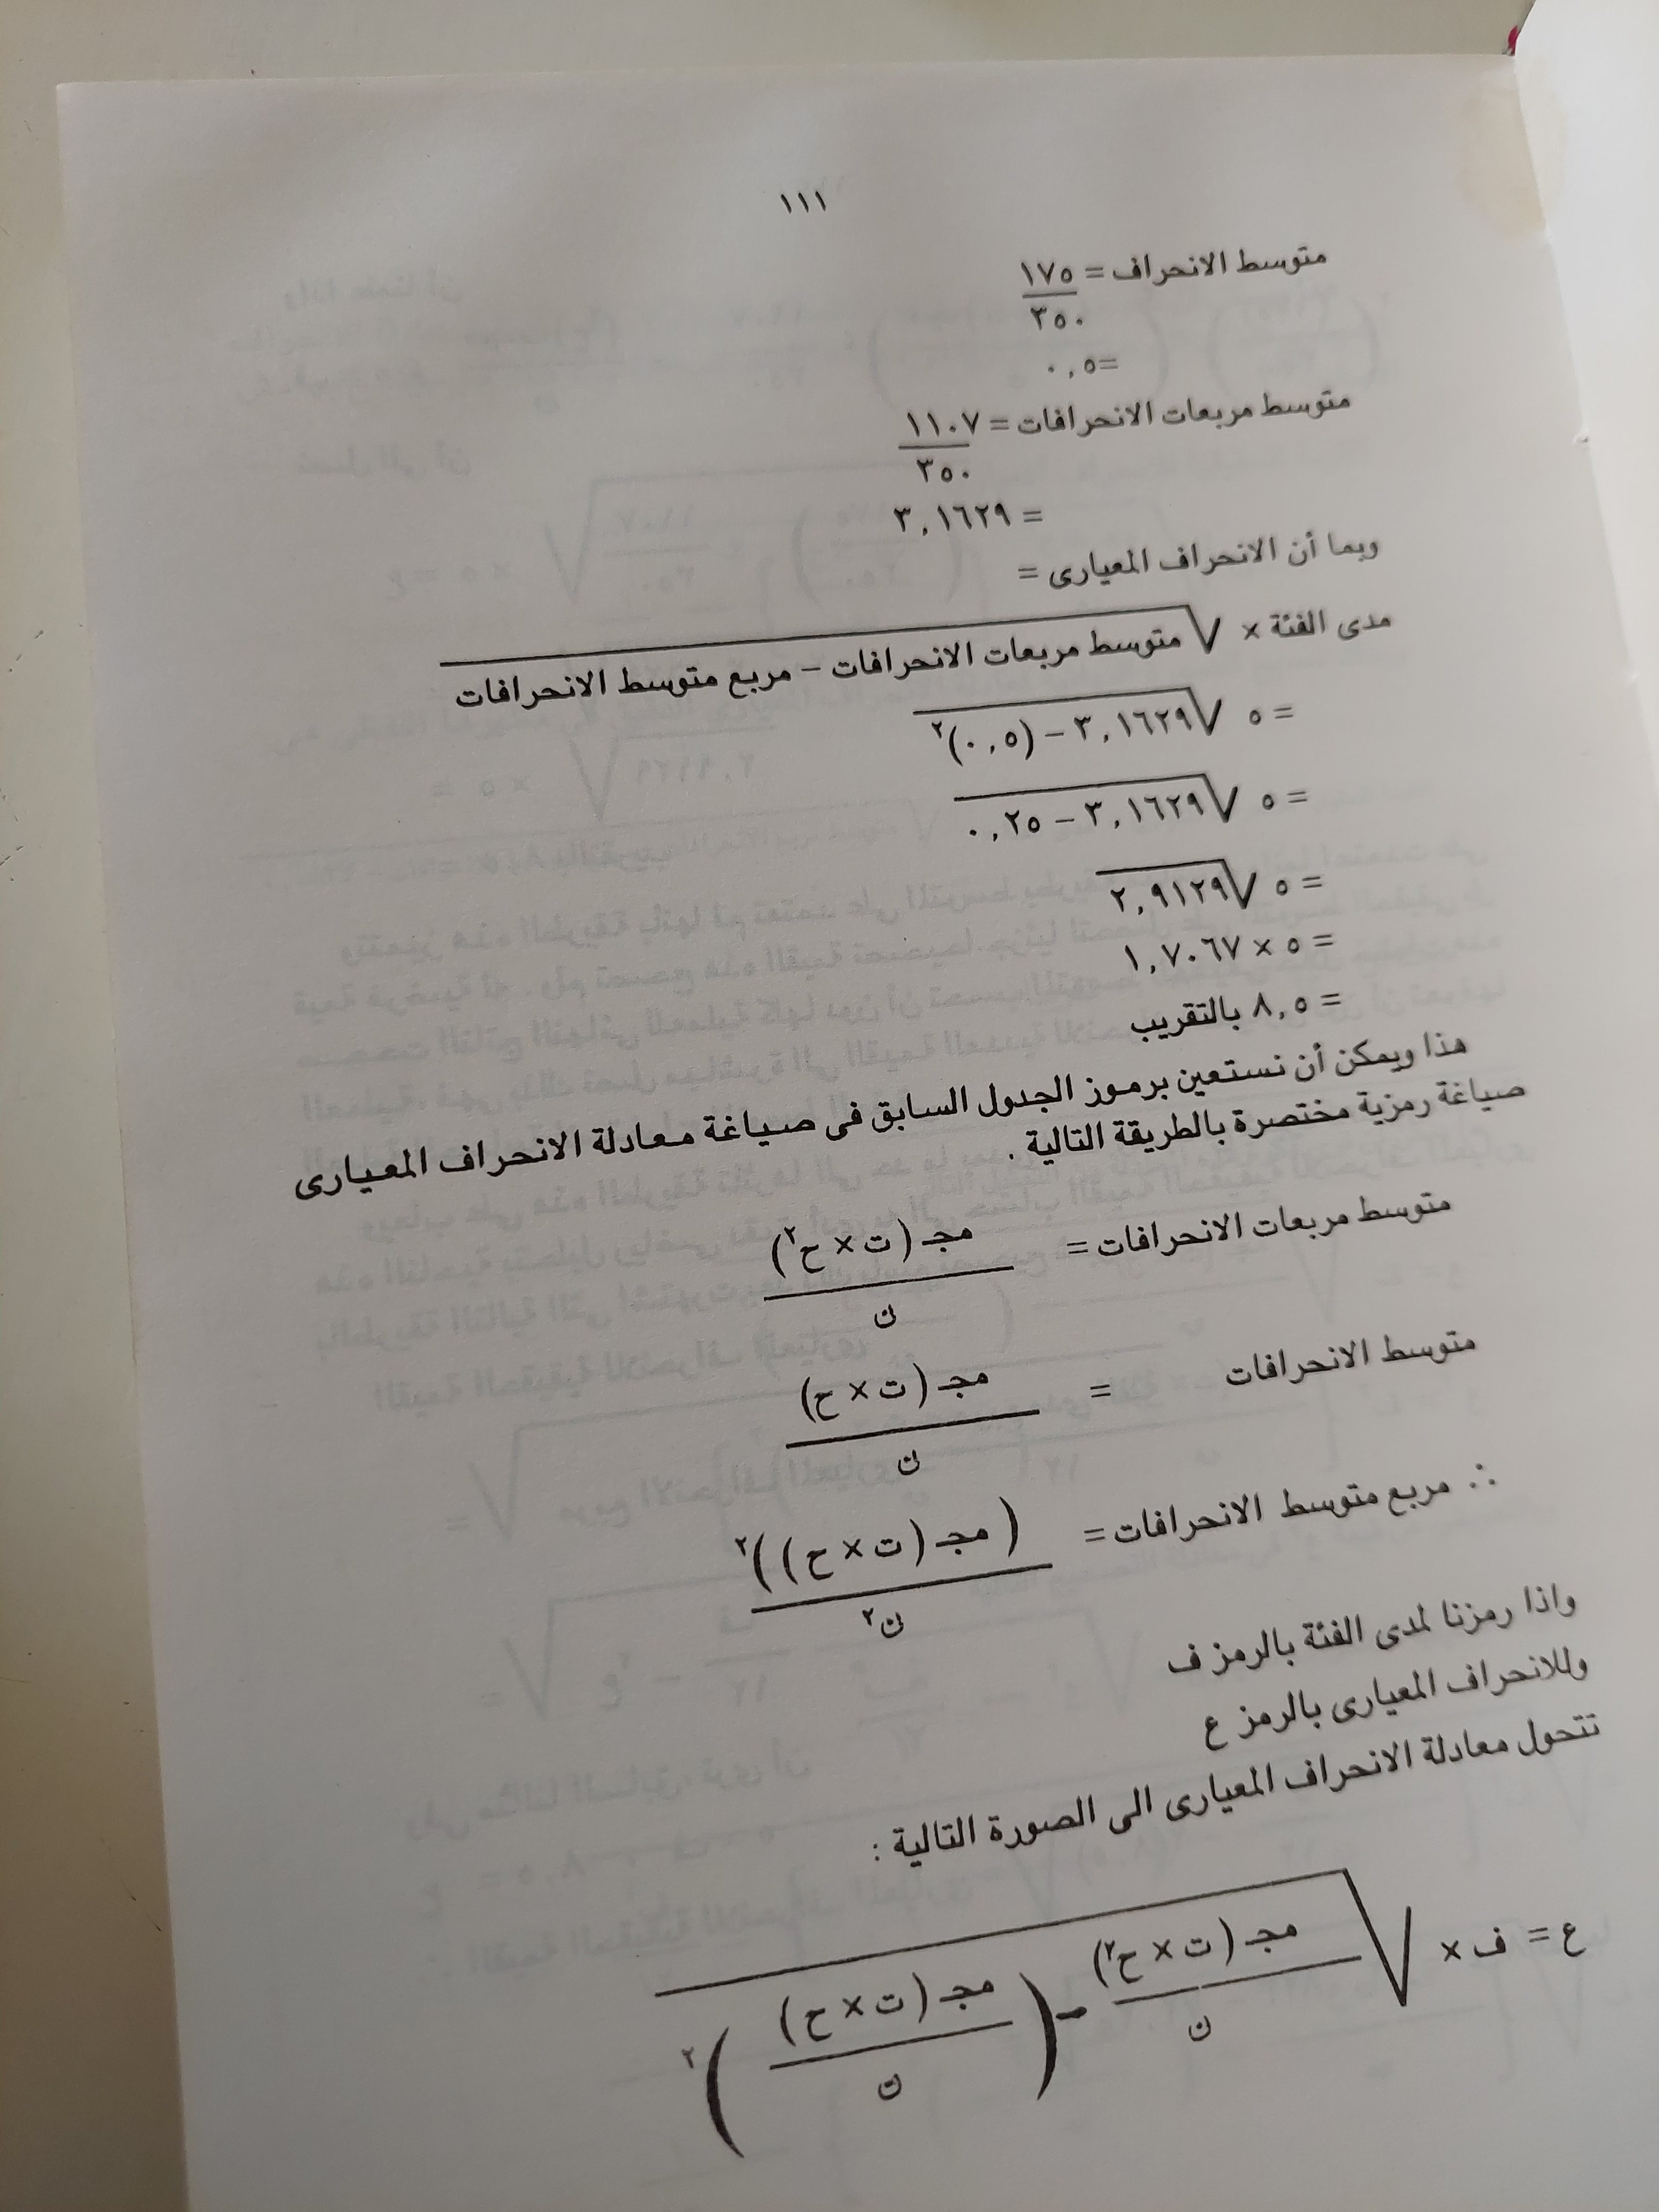 ١١١
متوسط الانحراف = ١٧٥
٣٥٠
= ٠,٥
متوسط مربعات الانحرافات = ١١٠٧
٣٥٠
= ٣,١٦٢٩
وبما أن الانحراف المعيارى =
مدى الفئة × √ متوسط مربعات الانحرافات – مربع متوسط الانحرافات
= ٥ √ ٣,١٦٢٩ – (٠,٥)٢
= ٥ √ ٣,١٦٢٩ – ٠,٢٥
= ٥ √ ٢,٩١٢٩
= ٥ × ١,٧٠٦٧
= ٨,٥ بالتقريب
هذا ويمكن أن نستعين برموز الجدول السابق فى صياغة معادلة الانحراف المعيارى
صياغة رمزية مختصرة بالطريقة التالية .
متوسط مربعات الانحرافات = مجـ (ت × ح٢)
ن
متوسط الانحرافات = مجـ (ت × ح)
ن
∴ مربع متوسط الانحرافات = (مجـ (ت × ح))٢
ن٢
واذا رمزنا لمدى الفئة بالرمز ف
وللانحراف المعيارى بالرمز ع
تتحول معادلة الانحراف المعيارى الى الصورة التالية :
ع = ف × √ مجـ (ت × ح٢) – (مجـ (ت × ح))٢
ن ن